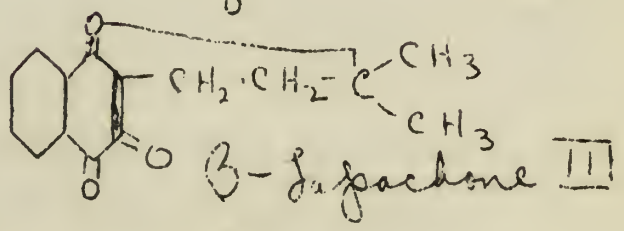 O
CH₃
CH₂·CH₂-C
CH₃
O
O
β-Lapachone III